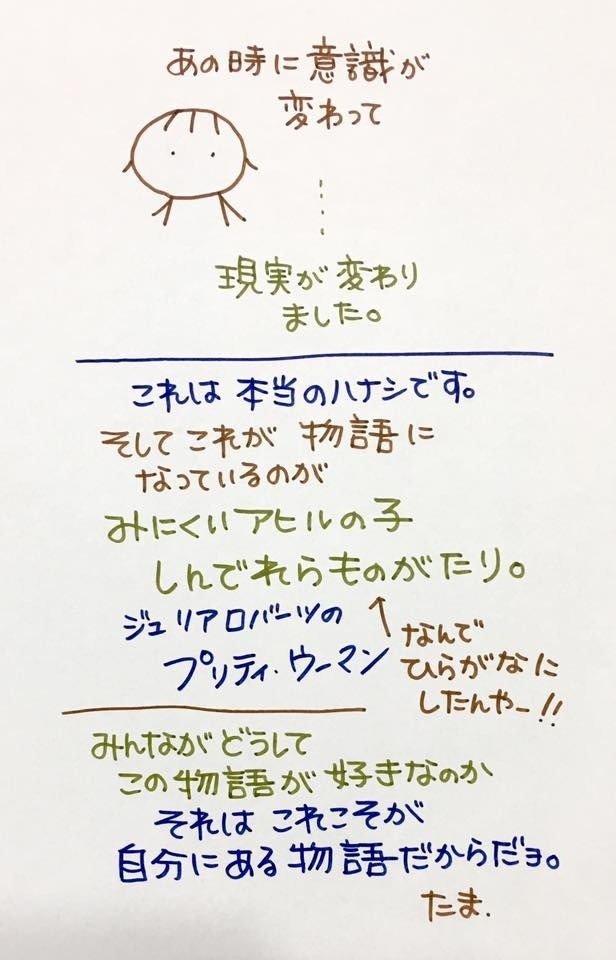 あの時に意識が
変わって
現実が変わり
ました。
これは本当のハナシです。
そしてこれが物語に
なっているのが
みにくいアヒルの子
しんでれらものがたり。
ジュリアロバーツの
プリティ・ウーマン
なんで
ひらがなに
したんやー!!
みんながどうして
この物語が好きなのか
それはこれこそが
自分にある物語だからだヨ。
たま.